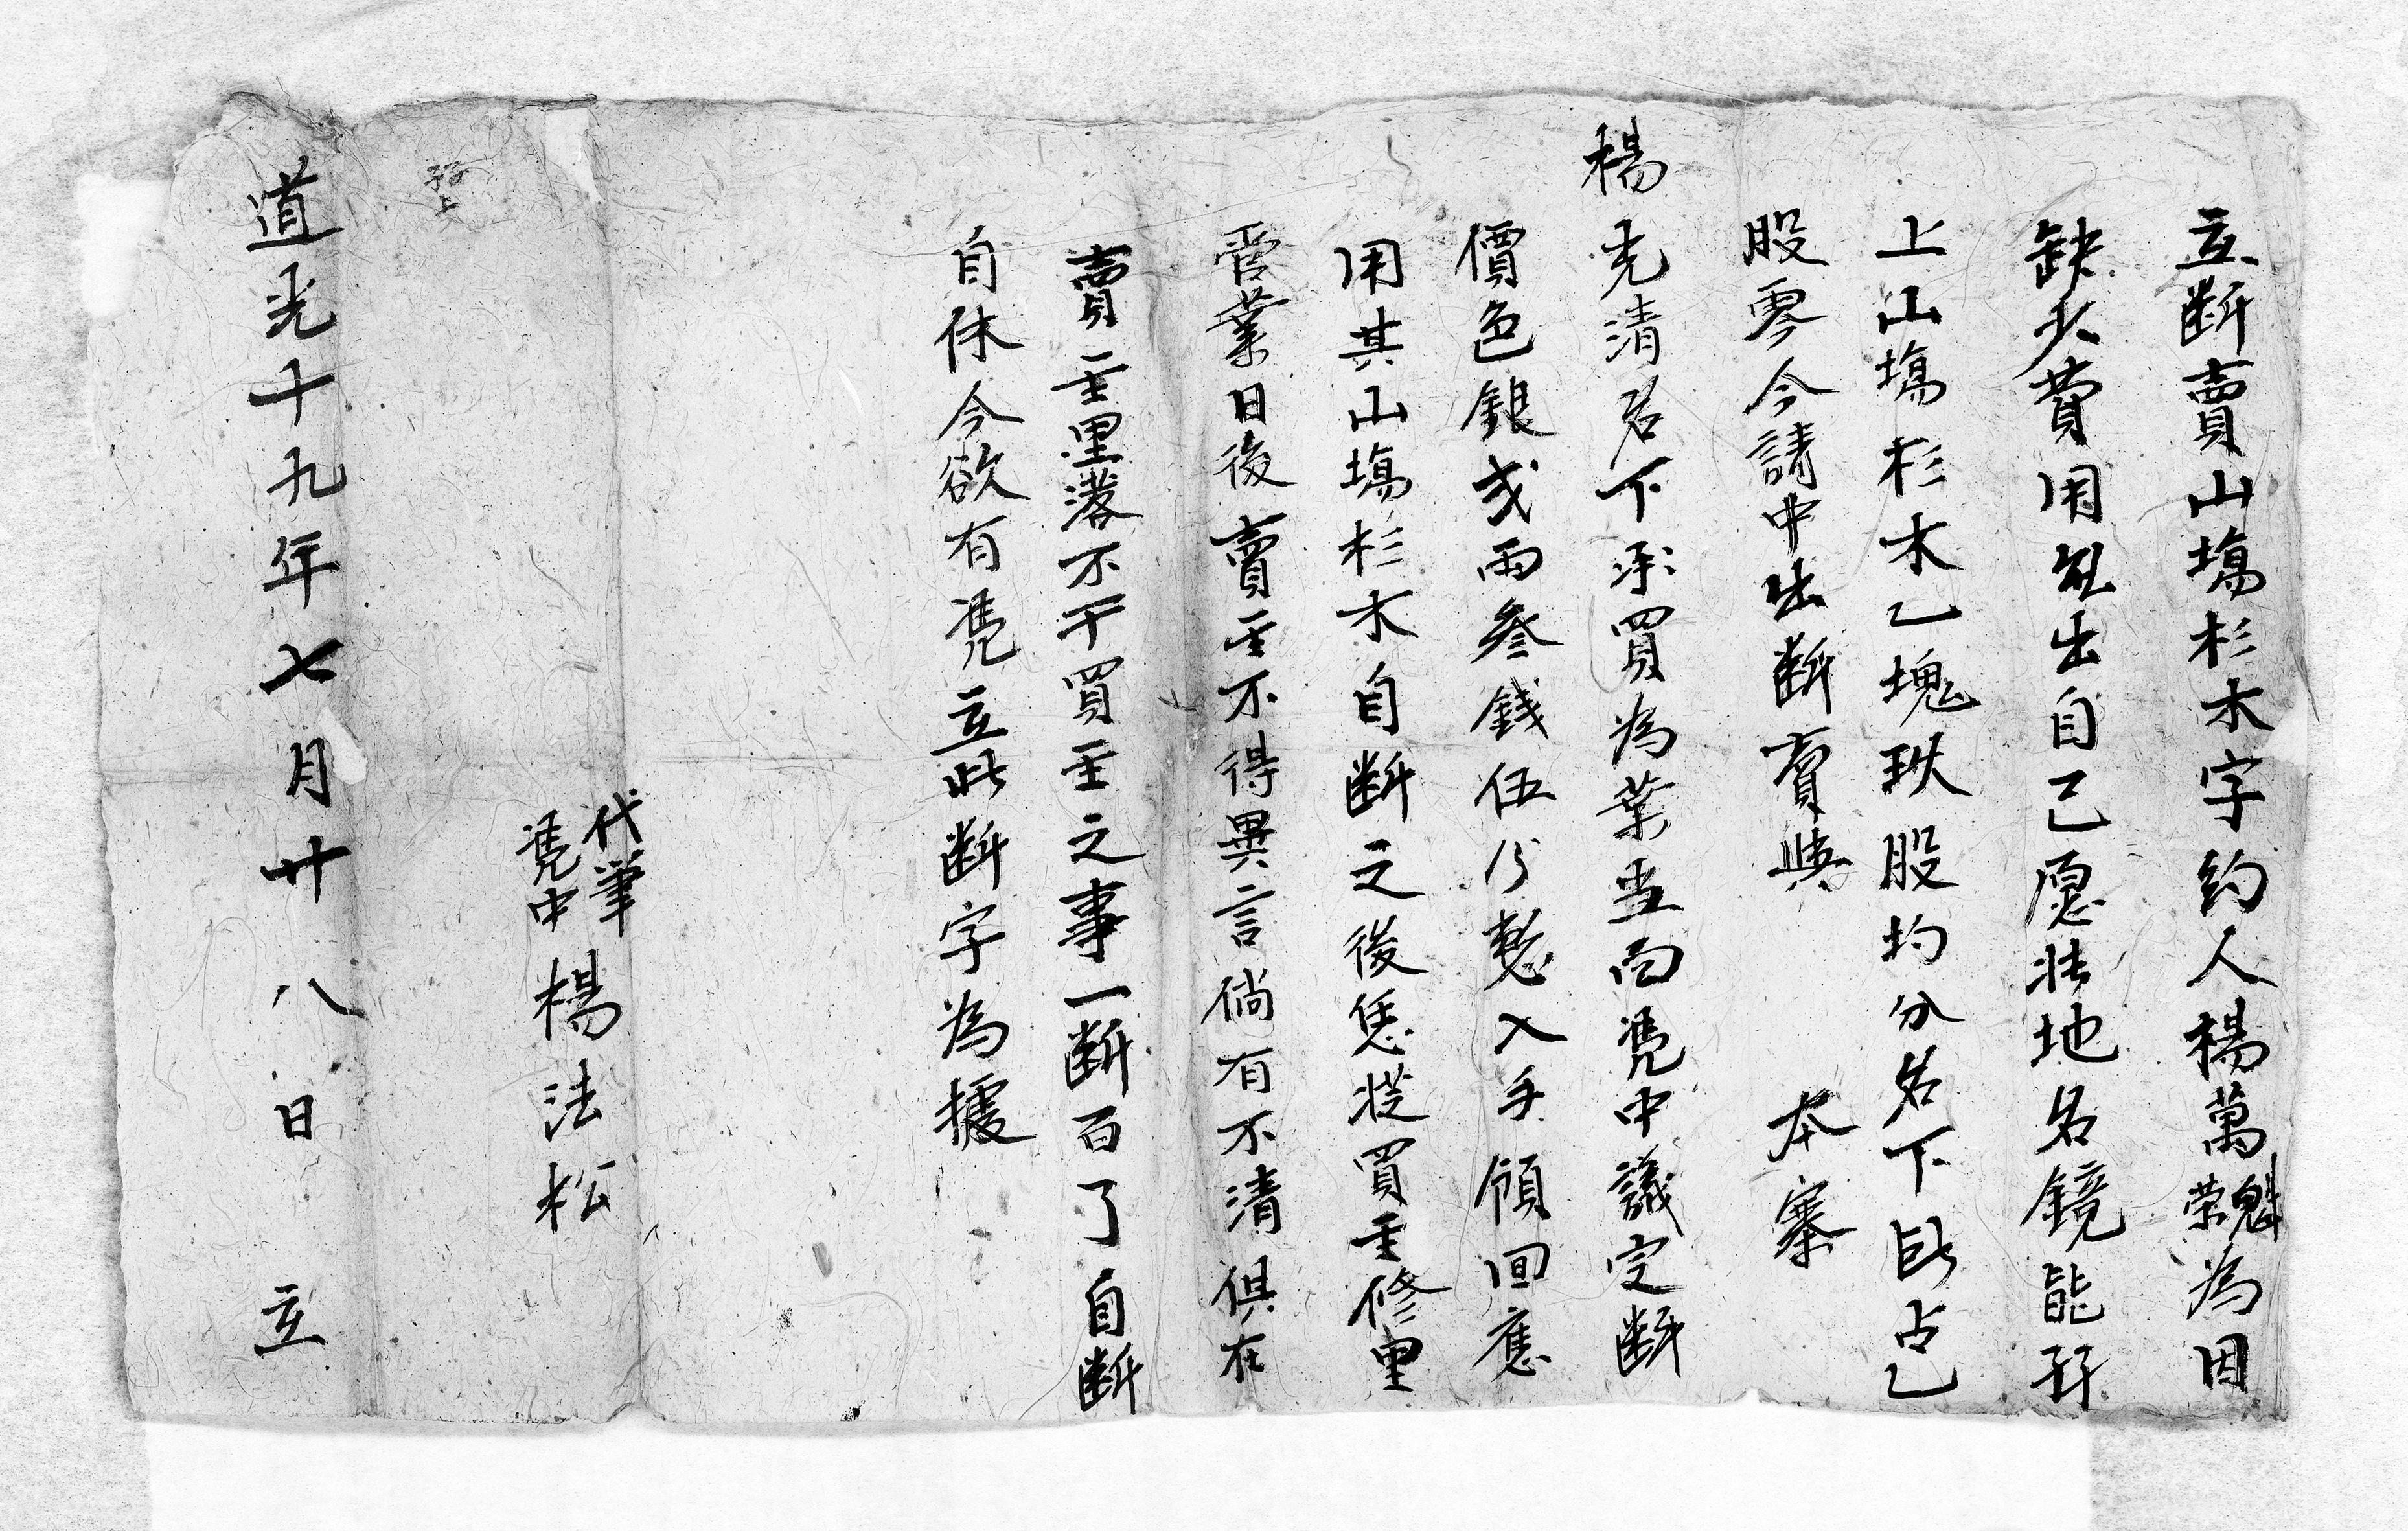 立断賣山塲杉木字約人楊萬魁荣為因
缺少費用無出自己愿将地名鏡能孖
上山塲杉木乙塊玖股均分名下所占乙
股零今請中出断賣與　本寨
楊光清名下承買為業当面凴中議定断
價色銀弍両叁錢伍分整入手領囬應
用其山塲杉木自断之後恁從買主修里
管業日後賣主不得異言倘有不清俱在
賣主里落不干買主之事一断百了自断
自休今欲有凴立此断字為據
代筆
凴中　楊法松
道光十九年七月廿八日　立